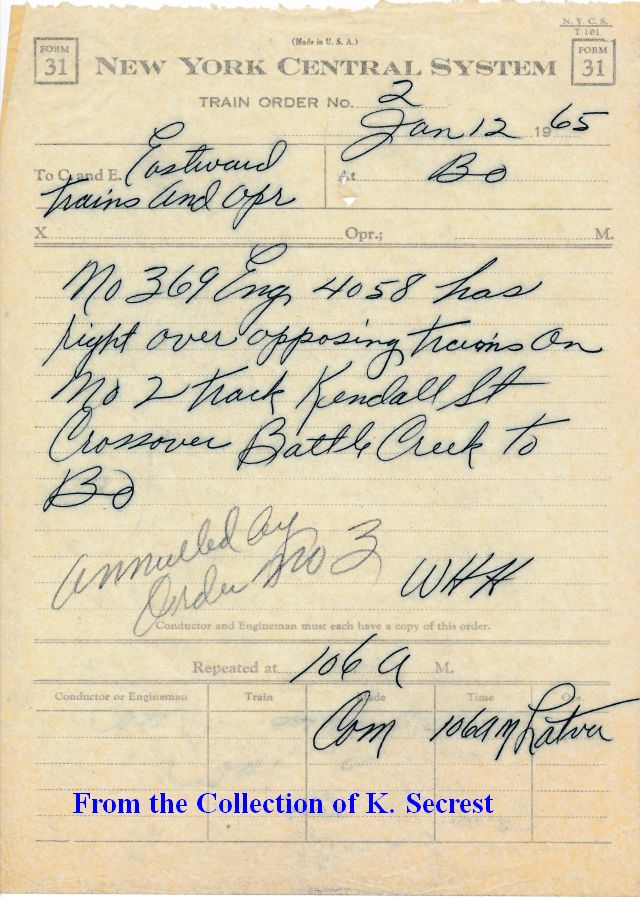 N. Y. C. S.
T 101
(Made in U. S. A.)
FORM
31
NEW YORK CENTRAL SYSTEM
FORM
31
TRAIN ORDER No. 2
Jan 12 1965
To C. and E. Eastward
trains and opr
At BO
X Opr.; M.
No 369 Eng 4058 has
right over opposing trains on
No 2 track Kendall St
Crossover Battle Creek to
BO
annulled by
Order No 3
WHH
Conductor and Engineman must each have a copy of this order.
Repeated at 106 A M.
Conductor or Engineman Train Made Time Opr.
Com 106AM
From the Collection of K. Secrest